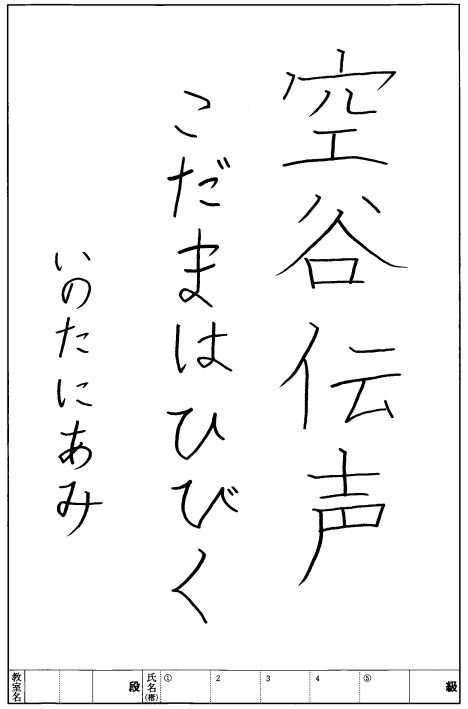 空谷伝声
こだまはひびく
いのたにあみ
級 ⑤ 4 3 2 ① 氏名(楷) 段 教室名